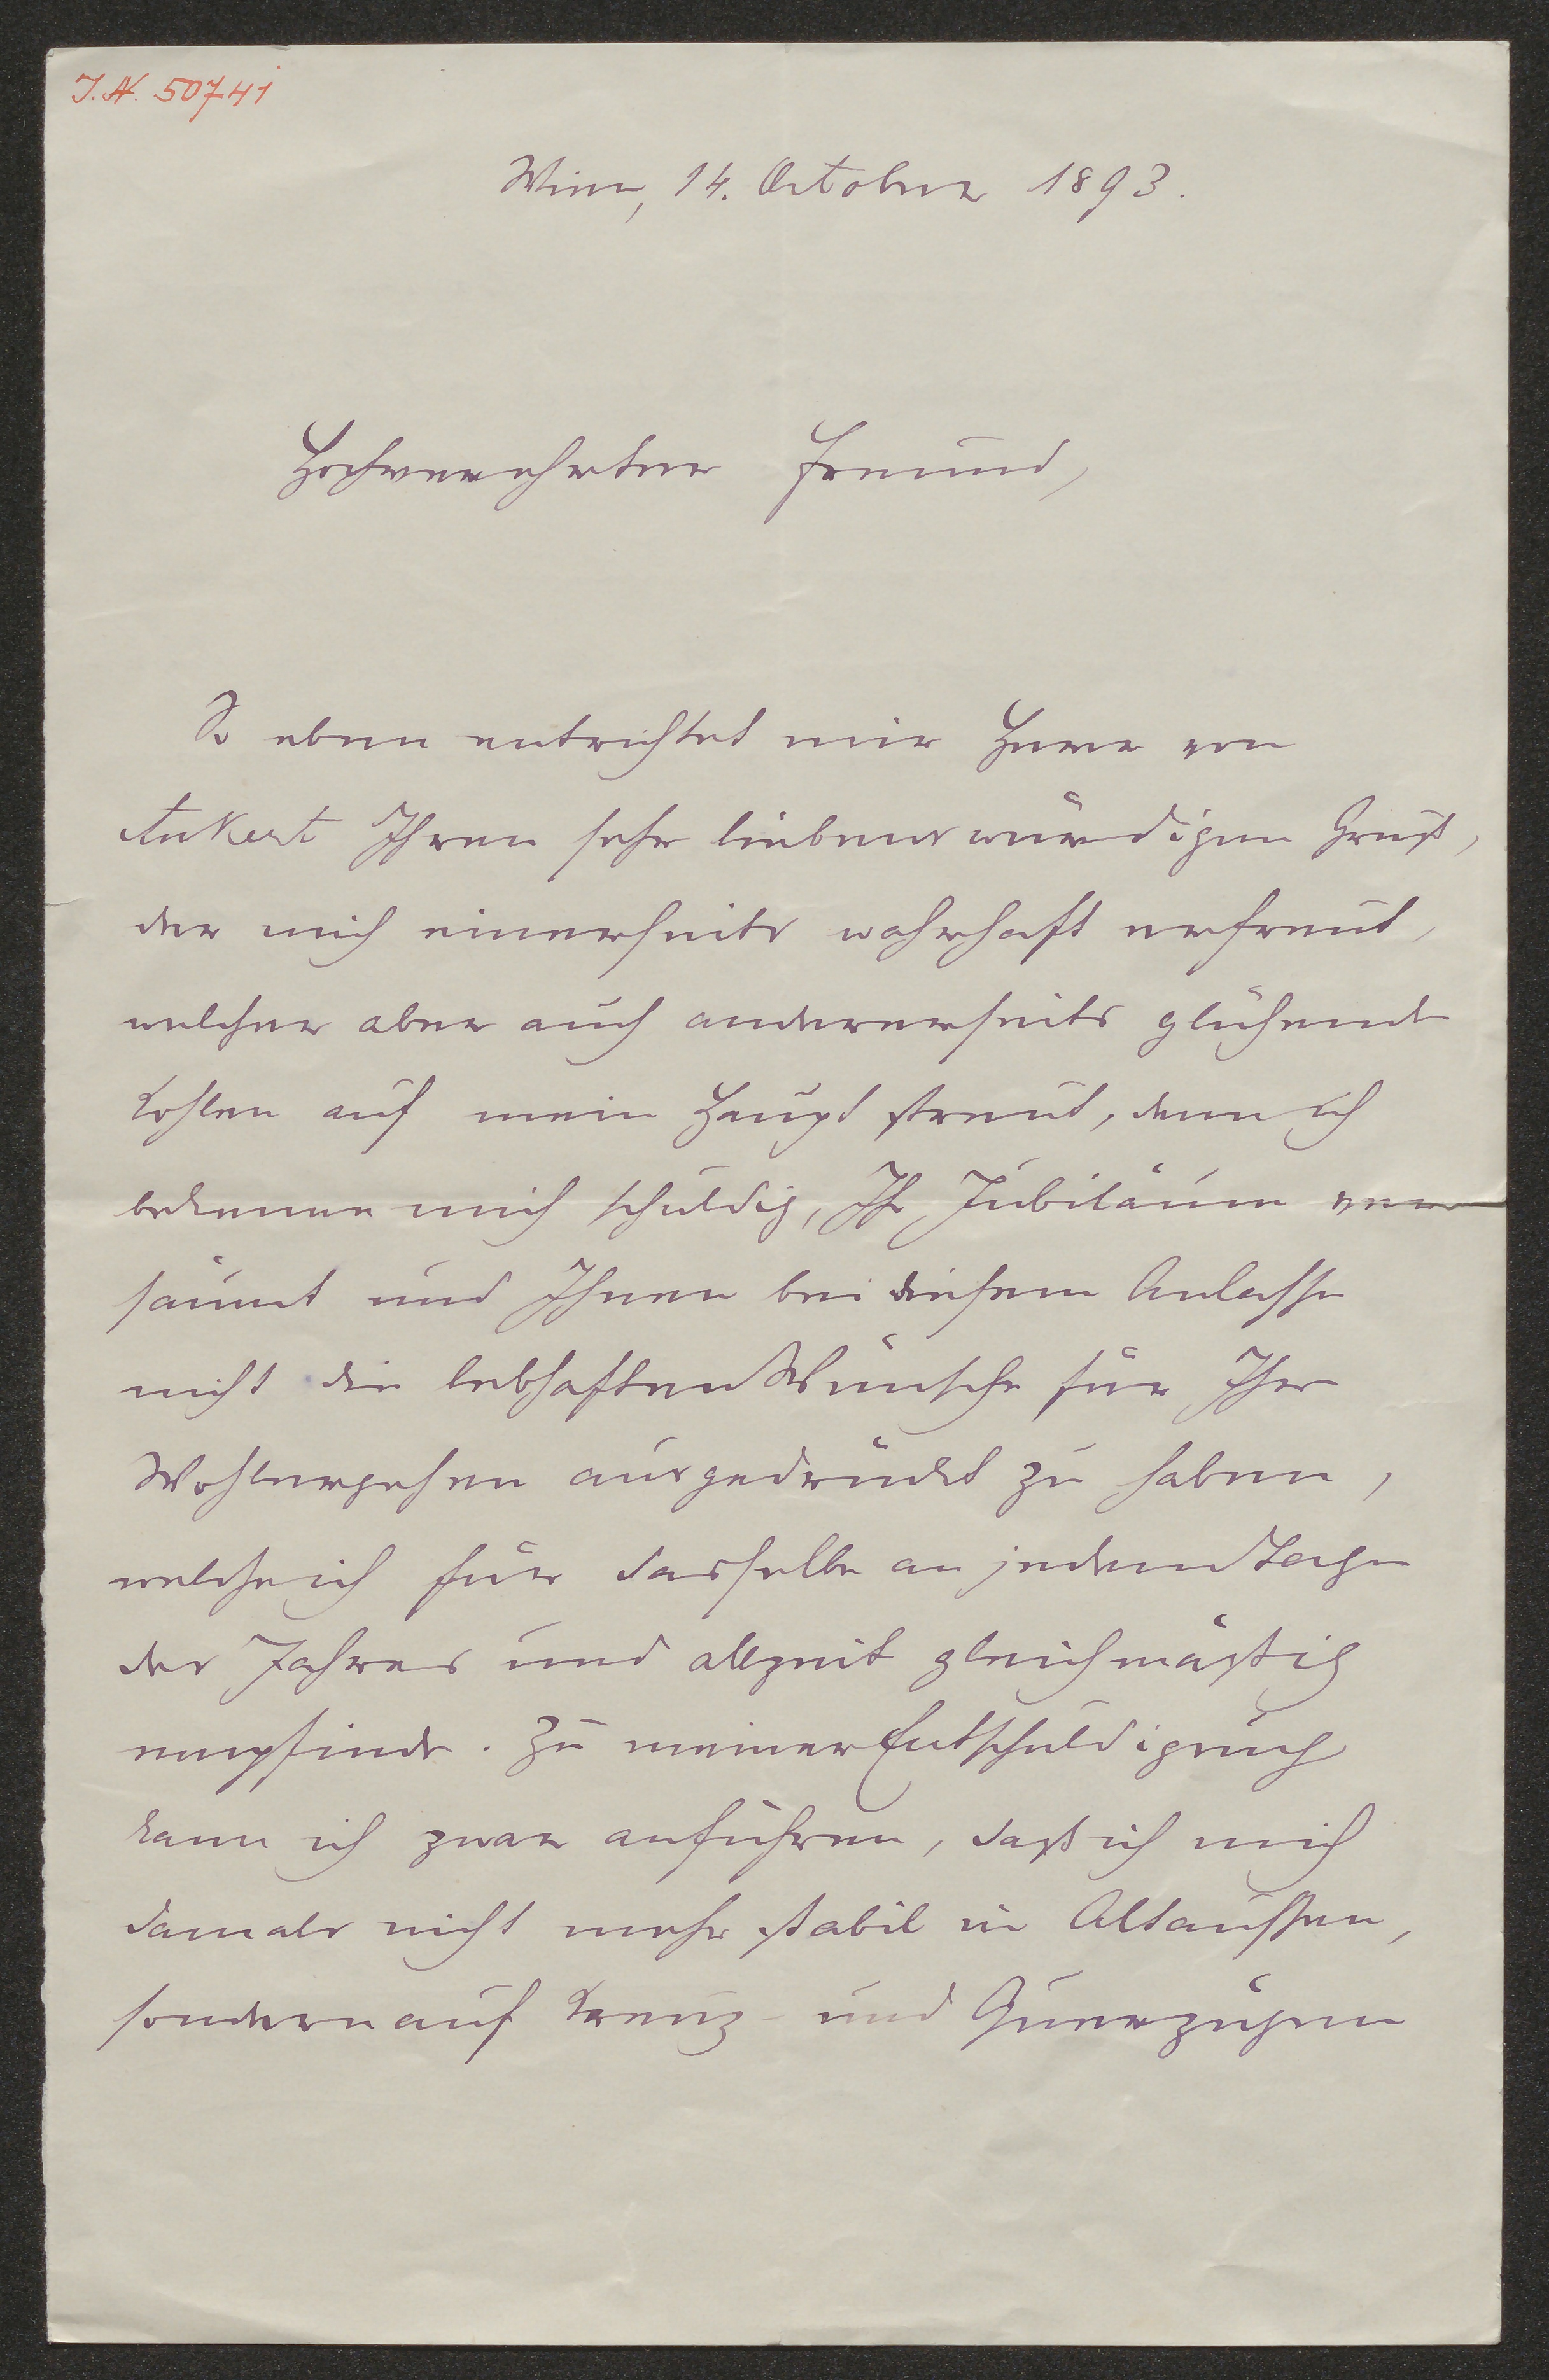 I.N. 50741
Wien, 14. October 1893.
Hochverehrter Freund,
So eben entrichtet mir Herr von
Ankert Ihren sehr liebenswürdigen Gruß,
der mich einerseits wahrhaft erfreut,
welcher aber auch andererseits glühende
Kohlen auf mein Haupt streut, denn ich
bekenne mich schuldig, Ihr Jubiläum ver
säumt und Ihnen bei diesem Anlasse
nicht die lebhaften Wünsche für Ihr
Wohlergehen ausgedrückt zu haben,
welche ich für dasselbe an jedem Tage
des Jahres und allzeit gleichmäßig
empfinde. Zu meiner Entschuldigung
kann ich zwar anführen, daß ich mich
damals nicht mehr stabil in Altaussee,
sondern auf Kreuz- und Querzügen